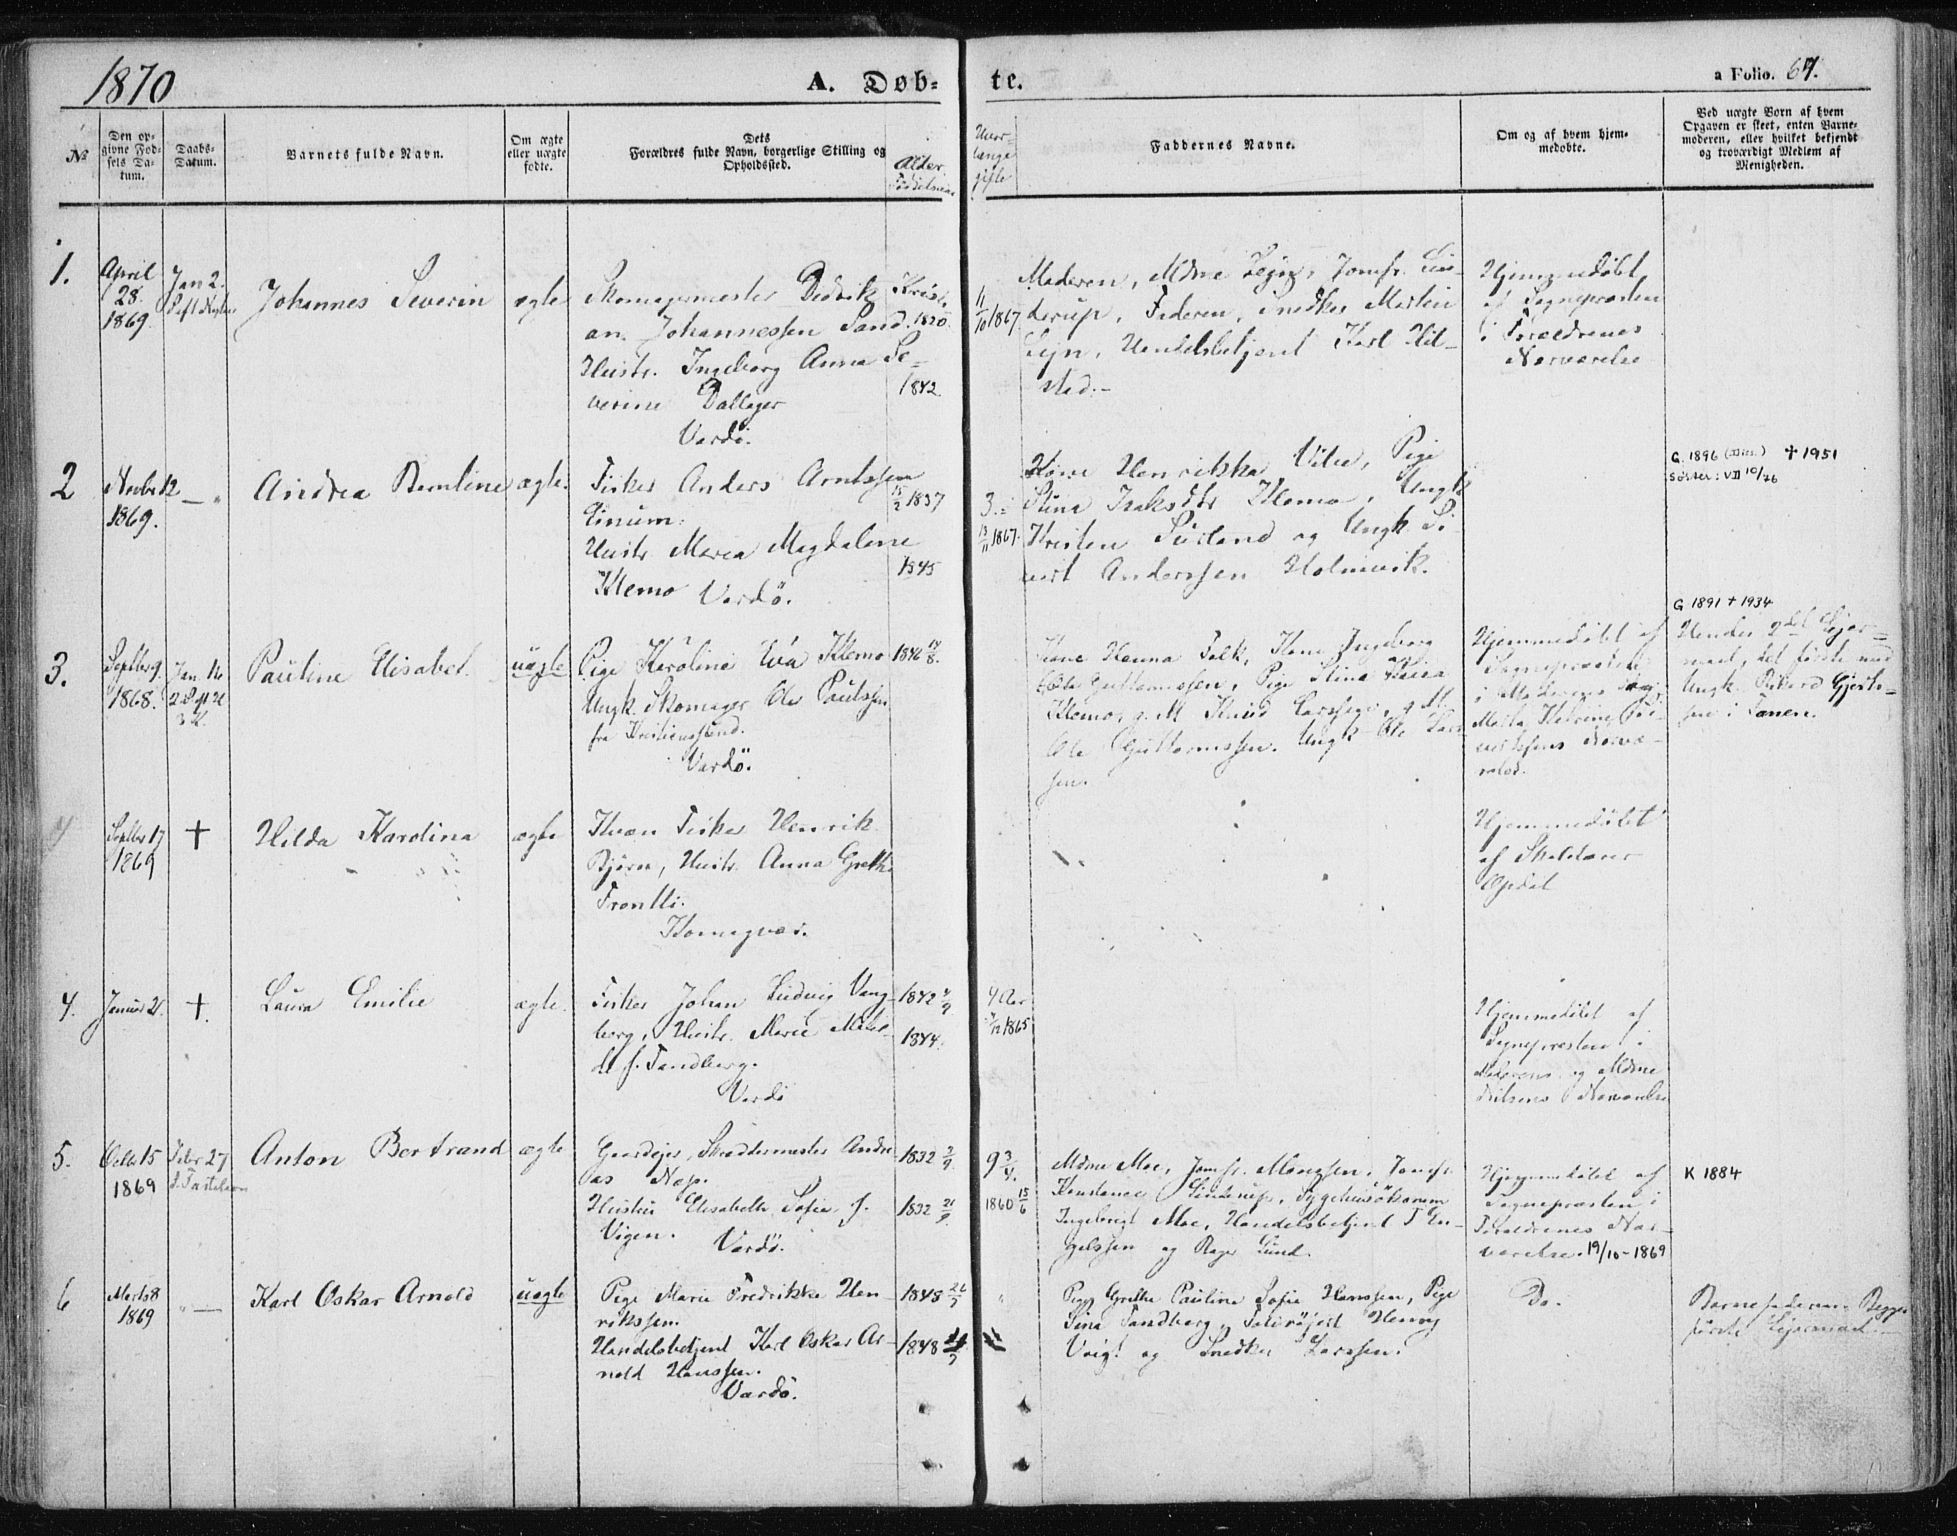 1870
A. Døb-
te.
a Folio. 67.
№
Den opgivne Fødsels Datum.
Daabs-Datum.
Barnets fulde Navn.
Om ægte eller uægte fødte.
Dets Forældres fulde Navn, borgerlige Stilling og Opholdssted.
Alder
Faddernes Navne.
Om og af hvem hjemmedøbte.
Ved uægte Born af hvem Opgaven er skeet, enten Barnemoderen, eller hvilket bekjendt og troværdigt Medlem af Menigheden.
1.
April
28.
1869.
Jan 2.
Johannes Severin
ægte
Skomagermester Dedrik Kristi-
an Johannessen Sand.
Hustr. Ingeborg Anna Se-
verine Dallager
Vardö.
1842
11/10 1867.
Moderen, Mdme Lejn, Jomfr. Lin-
derup, Faderen, Snedker Martin
Lejn, Handelsbetjent Karl Hil-
sted.-
Hjemmedöbt
af Sognepræsten
i Forældrenes
Nærværelse
2
1869.
Andrea Berntine
ægte.
Fisker Anders Arntssen
Einum.
Hustr Maren Magdalene
Klemo Vardö.
15/2 1837
1845
3.
13/11 1867.
Kone Henrikka, Pige
Stina Isaksdtr Klemo, Ungk
Kristen og Ungk. Si-
vert Anderssen Holmvik.
G. 1896 † 1951
Søster: VII 10/76
3.
Septbr 9.
1868.
Jan. 16
Pauline Elisabet.
uægte
Pige Karolina Eva Klemo
Ungk. Skomager Ole Paulssen
fra Kristianssund.
Vardö.
1846 14/8.
Kone Hanna Falk, Kone Ingeborg
Guttormssen, Pige Stina Kaisa
Klemo, g. M Knud Larssen, g M.
Ole Guttormssen. Ungk Ole Lars-
sen.
Hjemmedöbt af
Sognepræsten
i Moderens og
G 1891 † 1934
Hendes 2det Lejer-
maal, det förste med
Ungk. Rikard Gjerts-
sen i Tanen.
4
Septbr 17
1869
†
Hilda Karolina
ægte
Kvæn Fisker Henrik
Björn, Hustr. Anna Grethe
Frontti.
Komagvær.
Hjemmedöbt
af Skolelærer
Opdal
4.
Januar 21.
†.
Laura Emilie
ægte.
Fisker Johan Ludvig Vang-
berg, Hustr. Marie Mathil-
de f. Sandberg.
Vardö
1842
1844.
4 Aar
1865
Hjemmedöbt af
Sognepræsten i
Moderens og Mdme
Nilsens Nærværelse
5.
Octbr 15
1869
Febr 27
Anton Bertrand
ægte
Gaardejer, Skræddermester Andre-
as Nap.
Hustru Elisabeth Sofie f.
Vigen. Vardö.
1832
1832 21/9.
9 3/4.
1860 15/6
Mdme Moe, Jomfr. Mongssen, Jomfr.
Konstance Linderup, Sygehusökonom
Ingebrigt Moe, Handelsbetjent T En-
gelssen og Roger Lund.
Hjemmedöbt af
Sognepræsten i
Forældrenes Nær-
værelse. 19/10-1869
K 1884
6
Marts 8
1869
"
Karl Oskar Arnold
uægte
Pige Marie Fredrikke Hen-
rikssen.
Handelsbetjent Karl Oskar Ar-
nold Hanssen.
Vardö.
1845
1848
"
Pige Grethe Pauline Sofie Hanssen, Pige
Sina Sandberg, Henry
Voigt og Snedker Larssen.
Do.
Barnefaderen Begges
förste Lejermaal.